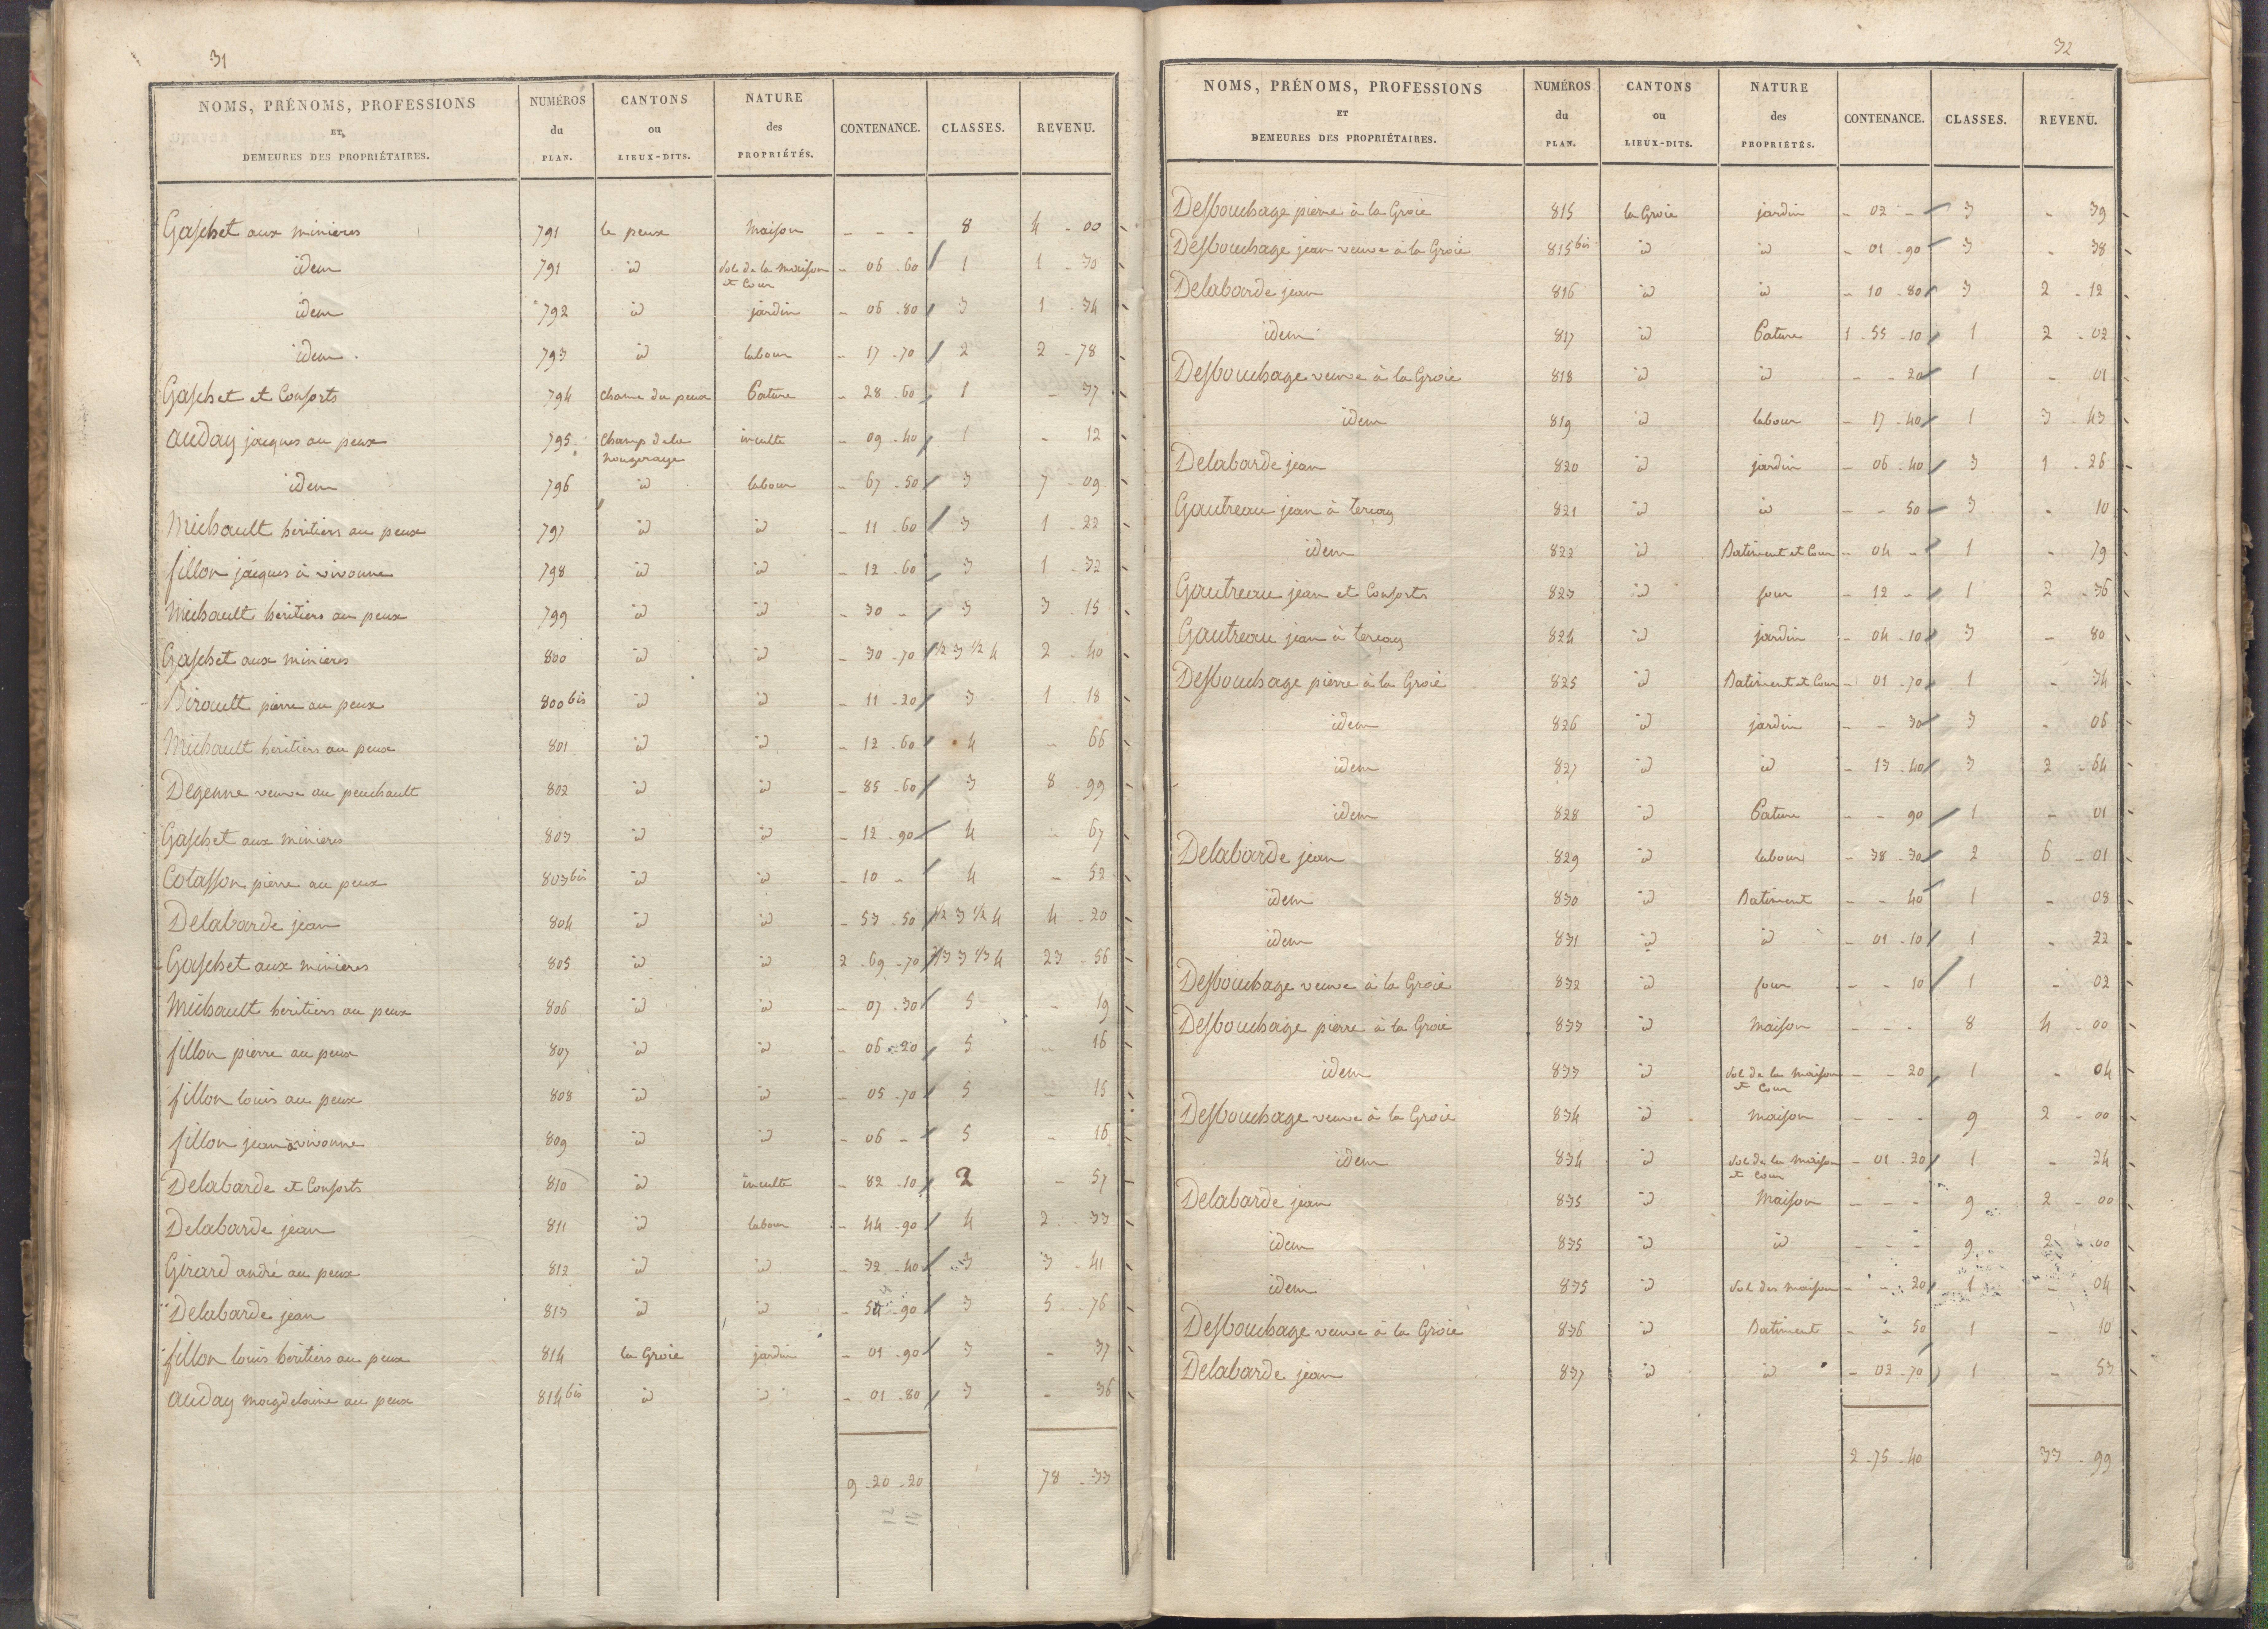 31
NOMS, PRÉNOMS, PROFESSIONS ET DEMEURES DES PROPRIÉTAIRES. NUMÉROS du PLAN. CANTONS ou LIEUX-DITS. NATURE des PROPRIÉTÉS. CONTENANCE. CLASSES. REVENU.
Gaschet aux minieres 791 le peux Maison - - - 8 4 - 00
idem 791 id Sol de la maison et Cour - 06 - 60 1 1 - 30
idem 792 id jardin - 06 - 80 3 1 - 34
idem 793 id labour - 17 - 70 2 2 - 78
Gaschet et Consorts 794 chaume du peux Pature - 28 - 60 1 - 37
auday jacques au peux 795 Champ de la nougeraye inculte - 09 - 40 1 - 12
idem 796 id labour - 67 - 50 3 7 - 09
Michault heritiers au peux 797 id id - 11 - 60 3 1 - 22
fillon jacques à vivonne 798 id id - 12 - 60 3 1 - 32
Michault heritiers au peux 799 id id - 30 - 3 3 - 15
Gaschet aux minieres 800 id id - 30 - 70 1/2 3 1/2 4 2 - 40
Birault pierre au peux 800 bis id id - 11 - 20 3 1 - 18
Michault heritiers au peux 801 id id - 12 - 60 4 - 66
Degenne veuve au peuchault 802 id id - 85 - 60 3 8 - 99
Gaschet aux minieres 803 id id - 12 - 90 4 - 67
Colasson pierre au peux 803 bis id id - 10 - 4 - 52
Delabarde jean 804 id id - 53 - 50 1/2 3 1/2 4 4 - 20
Gaschet aux minieres 805 id id 2 - 69 - 70 3 1/3 4 23 - 56
Michault heritiers au peux 806 id id - 07 - 30 5 - 19
fillon pierre au peux 807 id id - 06 - 20 5 - 16
fillon louis au peux 808 id id - 05 - 70 5 - 15
fillon jean à vivonne 809 id id - 06 - 5 - 16
Delabarde et Consorts 810 id inculte - 82 - 10 2 - 57
Delabarde jean 811 id labour - 44 - 90 4 2 - 33
Girard andré au peux 812 id id - 32 - 40 3 3 - 41
Delabarde jean 813 id id - 54 - 90 3 5 - 76
fillon louis heritiers au peux 814 la Groie jardin - 01 - 90 3 - 37
auday magdelaine au peux 814 bis id id - 01 - 80 3 - 36
9 - 20 - 20 78 - 33
12
14
32
NOMS, PRÉNOMS, PROFESSIONS ET DEMEURES DES PROPRIÉTAIRES. NUMÉROS du PLAN. CANTONS ou LIEUX-DITS. NATURE des PROPRIÉTÉS. CONTENANCE. CLASSES. REVENU.
Desbouchage pierre à la Groie 815 la Groie jardin - 02 - 3 - 39
Desbouchage jean veuve à la Groie 815 bis id id - 01 - 90 3 - 38
Delabarde jean 816 id id - 10 - 80 3 2 - 12
idem 817 id Pature 1 - 55 - 10 1 2 - 02
Desbouchage veuve à la Groie 818 id id - - 20 1 - 01
idem 819 id labour - 17 - 40 1 3 - 43
Delabarde jean 820 id jardin - 06 - 40 3 1 - 26
Gautreau jean à terçay 821 id id - - 50 3 - 10
idem 822 id Batiment et Cour - 04 - 1 - 79
Gautreau jean et Consorts 823 id four - 12 - 1 2 - 36
Gautreau jean à terçay 824 id jardin - 04 - 10 3 - 80
Desbouchage pierre à la Groie 825 id Batiment et Cour - 01 - 70 1 - 34
idem 826 id jardin - - 30 3 - 06
idem 827 id id - 13 - 40 3 2 - 64
idem 828 id Pature - - 90 1 - 01
Delabarde jean 829 id labour - 38 - 30 2 6 - 01
idem 830 id Batiment - - 40 1 - 08
idem 831 id id - 01 - 10 1 - 22
Desbouchage veuve à la Groie 832 id four - - 10 1 - 02
Desbouchage pierre à la Groie 833 id Maison - - - 8 4 - 00
idem 833 id Sol de la maison et Cour - - 20 1 - 04
Desbouchage veuve à la Groie 834 id maison - - - 9 2 - 00
idem 834 id Sol de la maison et Cour - 01 - 20 1 - 24
Delabarde jean 835 id Maison - - - 9 2 - 00
idem 835 id id - - - 9 2 - 00
idem 835 id Sol des maison - - 20 1 - 04
Desbouchage veuve à la Groie 836 id Batiment - - 50 1 - 10
Delabarde jean 837 id id - 02 - 70 1 - 53
2 - 75 - 40 33 - 99